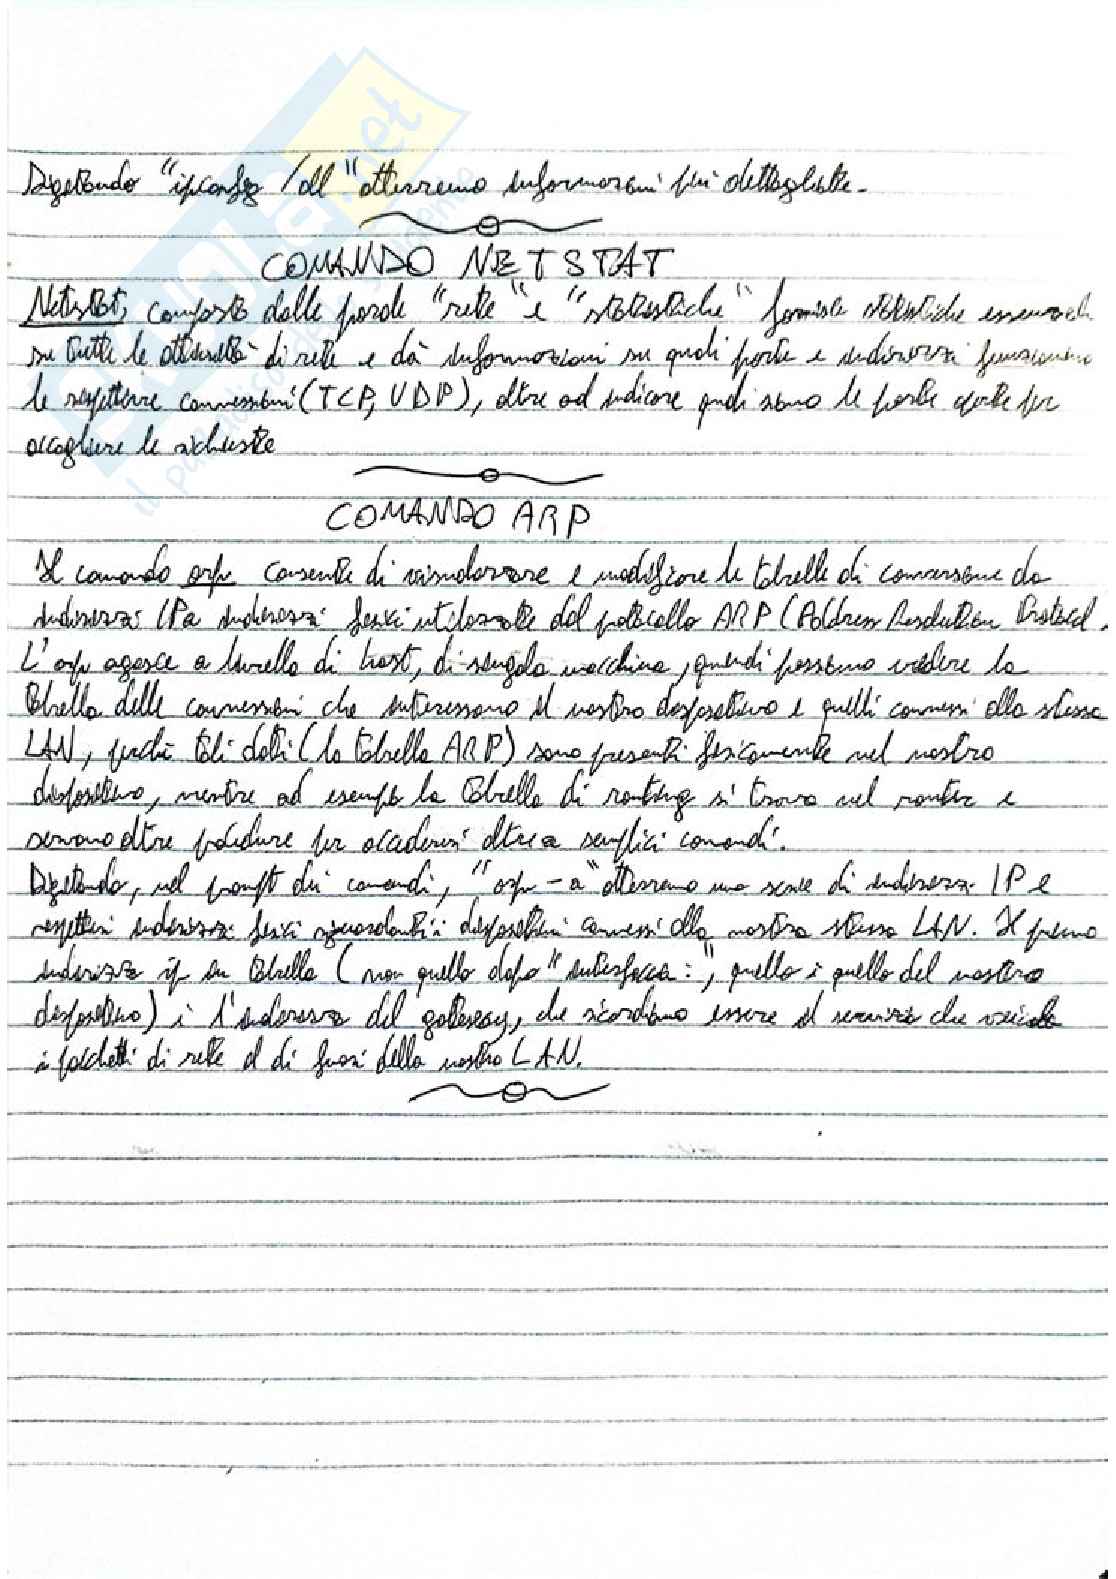 Digitando "ipconfig /all" otterremo informazioni più dettagliate.
COMANDO NETSTAT
Netstat, composto dalle parole "rete" e "statistiche" fornisce statistiche essenziali
su tutte le attività di rete e dà informazioni su quali porte e indirizzi funzionano
le rispettive connessioni (TCP, UDP), oltre ad indicare quali sono le porte aperte per
accogliere le richieste
COMANDO ARP
Il comando arp consente di visualizzare e modificare le tabelle di conversione da
indirizzi IP a indirizzi fisici utilizzate dal protocollo ARP (Address Resolution Protocol.
L'arp agisce a livello di host, di singola macchina, quindi possiamo vedere la
tabella delle connessioni che interessano il nostro dispositivo e quelli connessi alla stessa
LAN, perché tali dati (la tabella ARP) sono presenti fisicamente nel nostro
dispositivo, mentre ad esempio la tabella di routing si trova nel router e
servono altre procedure per accedervi oltre a semplici comandi.
Digitando, nel prompt dei comandi, "arp -a" otterremo una serie di indirizzi IP e
rispettivi indirizzi fisici riguardanti i dispositivi connessi alla nostra stessa LAN. Il primo
indirizzo ip in tabella (non quello dopo "interfaccia:", quello è quello del nostro
dispositivo) è l'indirizzo del gateway, che ricordiamo essere il servizio che veicola
i pacchetti di rete al di fuori della nostra LAN.
skuola.net
il paradiso dello studente